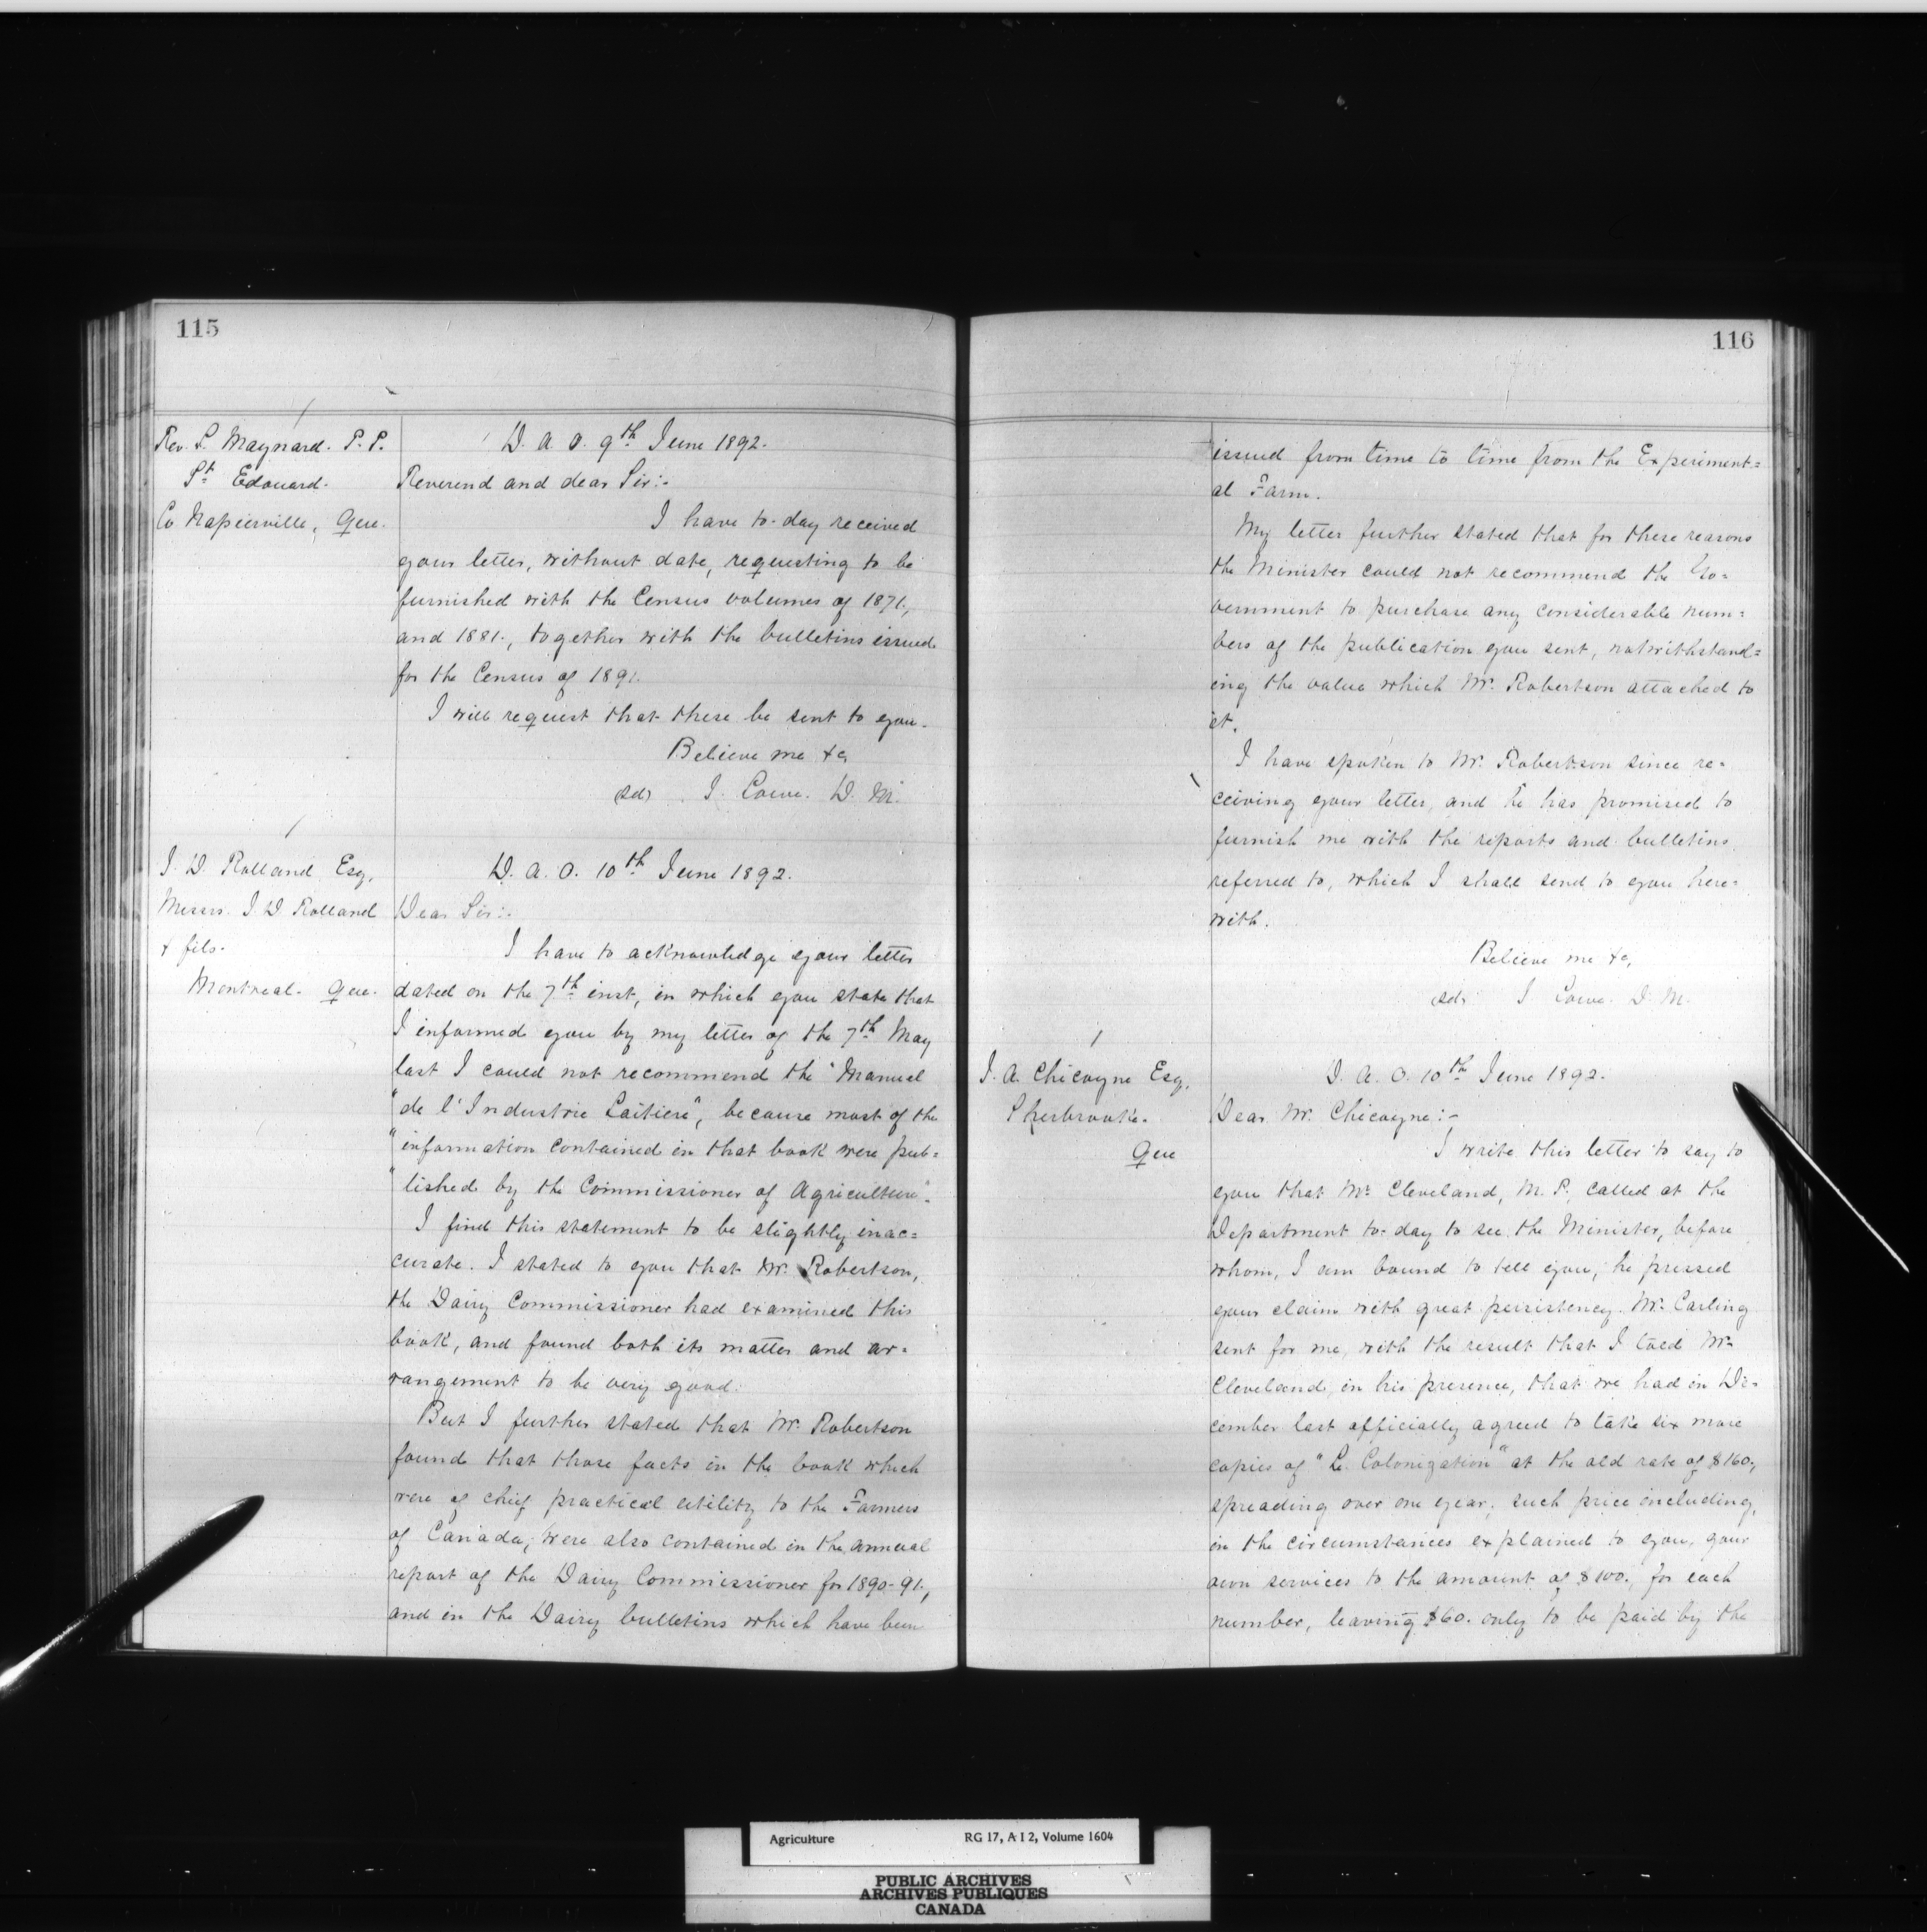 115
Rev. L. Maynard. P. P.
St Edouard.
Co Napierville, Que.
D. A. O. 9th June 1892.
Reverend and dear Sir:-
I have to-day received
your letter, without date, requesting to be
furnished with the Census volumes of 1871,
and 1881., together with the bulletins issued
for the Census of 1891.
I will request that these be sent to you.
Believe me &c,
(Sd) J. Lowe. D. M.
J. D. Rolland Esq,
Messrs. J. D. Rolland
& fils.
Montreal. Que.
D. A. O. 10th June 1892.
Dear Sir:-
I have to acknowledge your letter
dated on the 7th inst, in which you state that
I informed you by my letter of the 7th May
last I could not recommend the "Manuel
"de l'Industrie Laitiere", because most of the
"information contained in that book were pub=
"lished by the Commissioner of Agriculture".
I find this statement to be slightly inac=
curate. I stated to you that Mr. Robertson,
the Dairy Commissioner had examined this
book, and found both its matter and ar=
rangement to be very good.
But I further stated that Mr. Robertson
found that those facts in the book which
were of chief practical utility to the Farmers
of Canada, were also contained in the annual
report of the Dairy Commissioner for 1890-91.,
and in the Dairy bulletins which have been
116
issued from time to time from the Experiment=
al Farm.
My letter further stated that for these reasons
the Minister could not recommend the Go=
vernment to purchase any considerable num=
bers of the publication you sent, notwithstand=
ing the value which Mr. Robertson attached to
it.
I have spoken to Mr. Robertson since re=
ceiving your letter, and he has promised to
furnish me with the reports and bulletins
referred to, which I shall send to you here=
with.
Believe me &c,
(Sd) J Lowe. D. M.
J. A. Chicoyne Esq,
Sherbrooke.
Que
D. A. O. 10th June 1892.
Dear Mr. Chicoyne:-
I write this letter to say to
you that Mr. Cleveland, M. P. called at the
Department to-day to see the Minister, before
whom, I am bound to tell you, he pressed
your claim with great persistency. Mr. Carling
sent for me, with the result that I told Mr.
Cleveland, in his presence, that we had in De=
cember last officially agreed to take six more
copies of "La Colonization" at the old rate of $160.,
spreading over one year; such price including,
in the circumstances explained to you, your
own services to the amount of $100., for each
number, leaving $60. only to be paid by the
Agriculture RG 17, A I 2, Volume 1604
PUBLIC ARCHIVES
ARCHIVES PUBLIQUES
CANADA